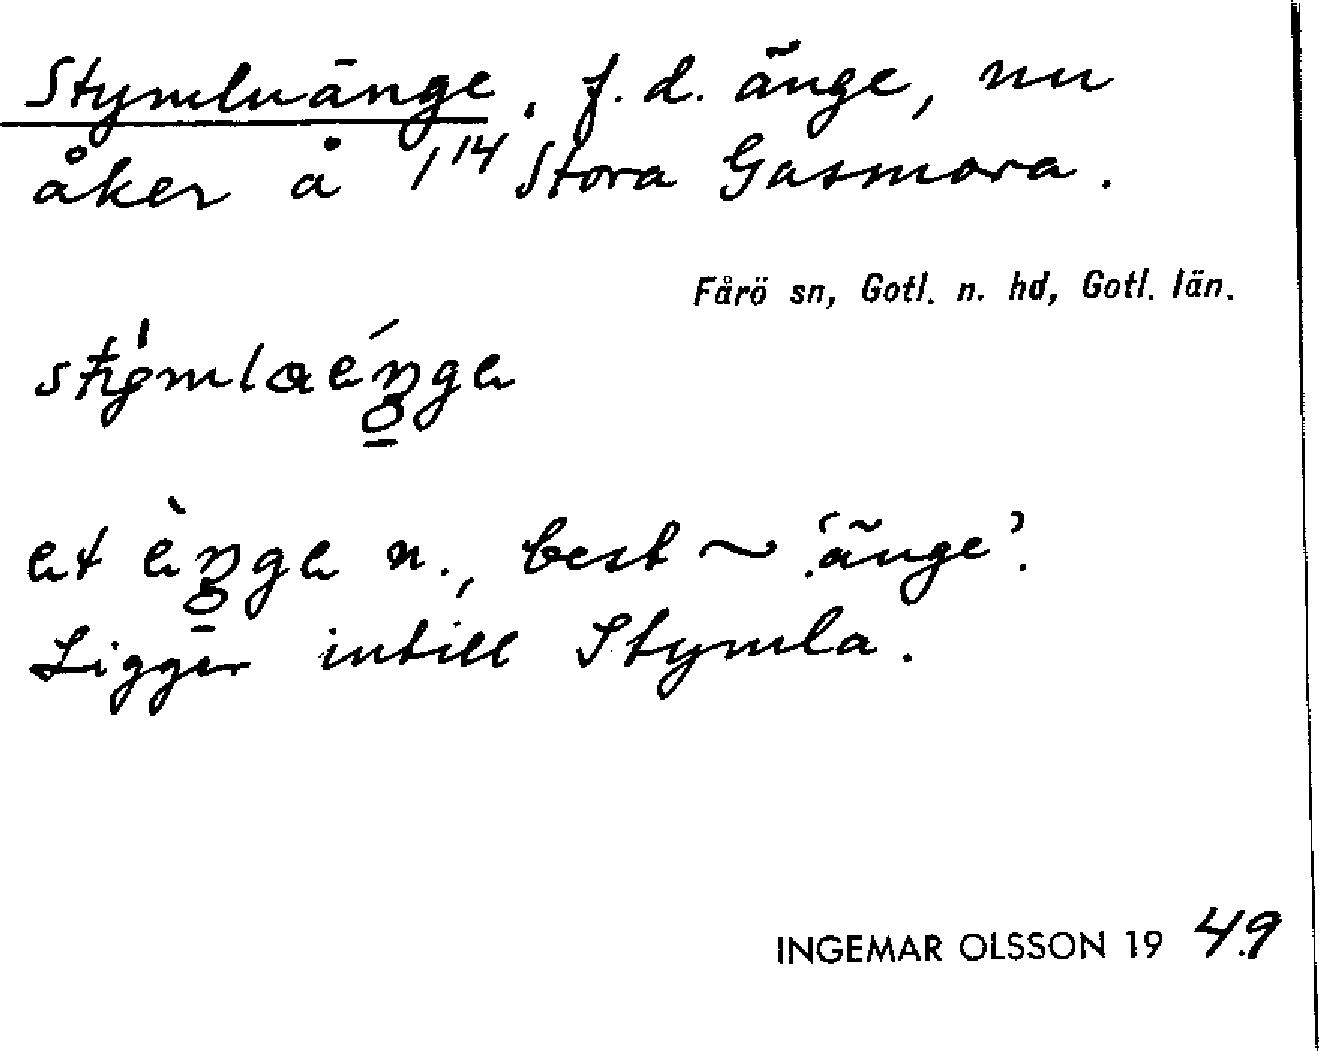 Stymluänge, f.d. änge, nu
åker å 1¹⁴ Stora Gasmora.
Fårö sn, Gotl. n. hd, Gotl. län.
n., best ~ 'änge'.
Ligger intill Stymla.
INGEMAR OLSSON 19 49